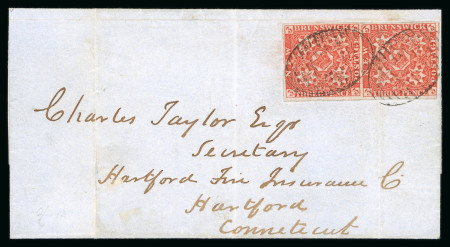 BRUNSWICK BRUNSWICK
Charles Taylor Esqr
Secretary
Hartford Fire Insurance C
Hartford
Connecticut